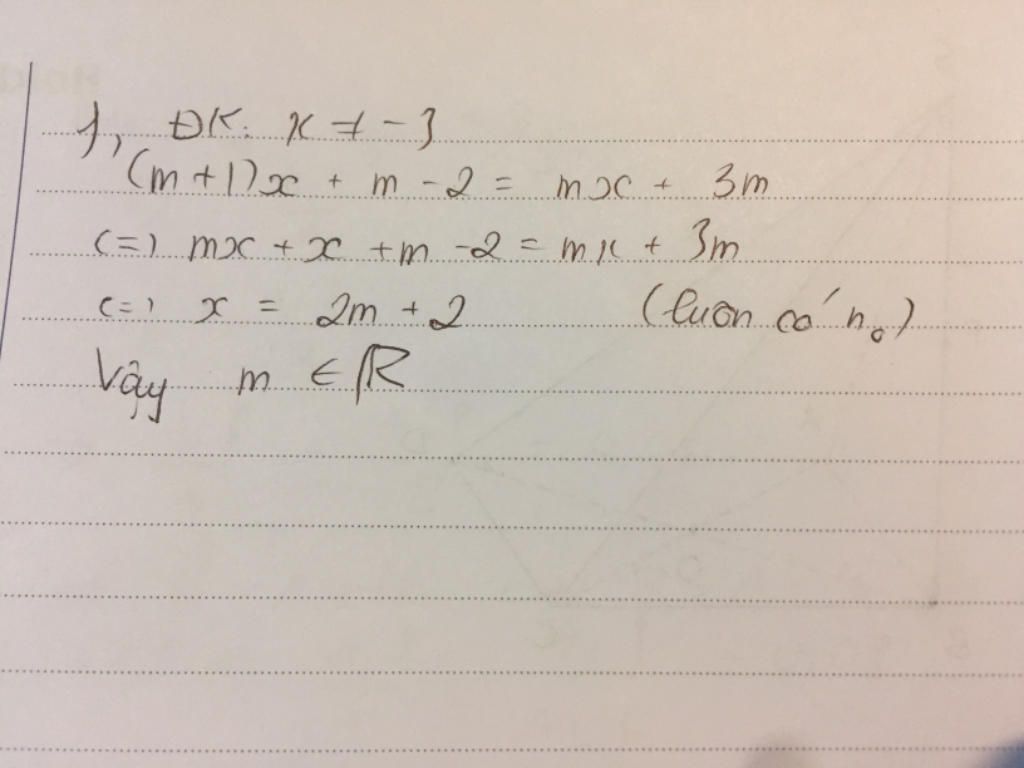 1, ĐK: x ≠ -3
(m+1)x + m - 2 = mx + 3m
(=) mx + x + m - 2 = mx + 3m
(=) x = 2m + 2 (luôn có n₀)
Vậy m ∈ ℝ